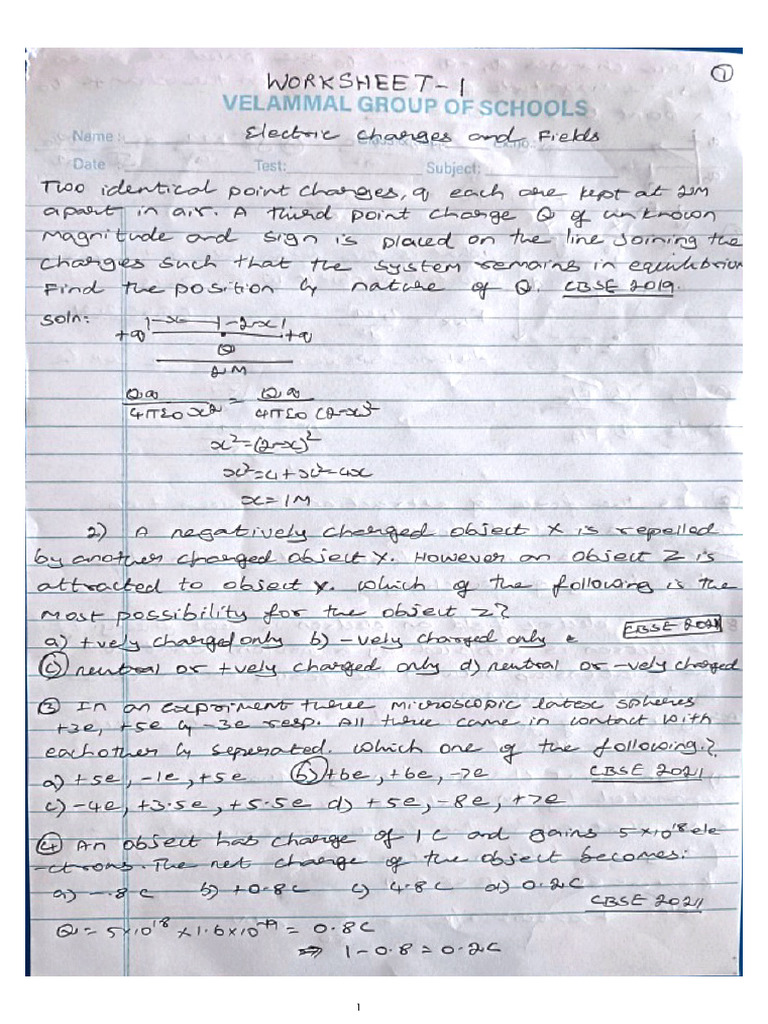 ①
WORKSHEET-1
VELAMMAL GROUP OF SCHOOLS
Name: Electric Charges and Fields
Date Test: Subject:
Two identical point charges, q each are kept at 2M
apart in air. A third point charge Q of unknown
Magnitude and sign is placed on the line Joining the
charges such that the system remains in equilibrium
Find the position & nature of Q. CBSE 2019.
Soln: |-x-|-2-x|
+q +q
Q
2M
Q.q/4πε0 x2 = Q.q/4πε0 (2-x)2
x²=(2-x)²
x²=4+x²-4x
x=1M
2) A negatively charged object X is repelled
by another charged object Y. However an object Z is
attracted to object Y. which of the following is the
most possibility for the object Z?
a) +vely charged only b) -vely charged only CBSE 2021
c) neutral or +vely charged only d) neutral or -vely charged
③ In an expriment three microscopic latex spheres
+3e, +5e & -3e resp. All three came in contact with
eachother & seperated. which one of the following.?
a) +5e, -1e, +5e b) +6e, +6e, -7e CBSE 2021
c) -4e, +3.5e, +5.5e d) +5e, -8e, +7e
④ An object has charge of 1C and gains 5×10¹⁸ ele
-ctrons. The net charge of the object becomes:
a) -.8C b) +0.8C c) 4.8C d) 0.2C
CBSE 2021
Q = 5×10¹⁸ ×1.6×10⁻¹⁹ = 0.8C
⇒ 1-0.8 = 0.2C
1